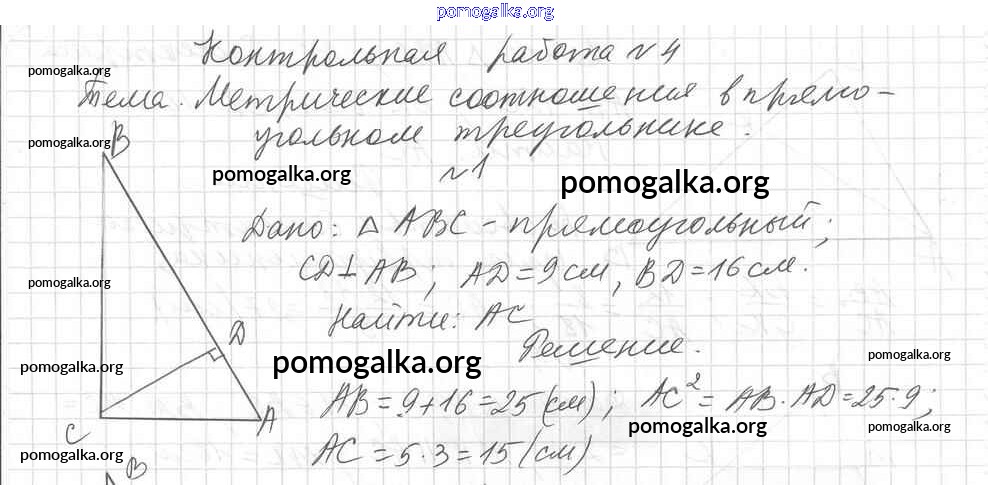 pomogalka.org
Контрольная работа №4
pomogalka.org
Тема. Метрические соотношения в прямо-
угольном треугольнике.
pomogalka.org
B
pomogalka.org
№1
pomogalka.org
Дано: △ABC - прямоугольный;
CD⊥AB; AD=9см, BD=16см.
pomogalka.org
Найти: AC
D
Решение.
pomogalka.org
pomogalka.org
pomogalka.org
AB=9+16=25(см); AC²=AB·AD=25·9;
C
A
pomogalka.org
pomogalka.org
AC=5·3=15(см)
pomogalka.org
B